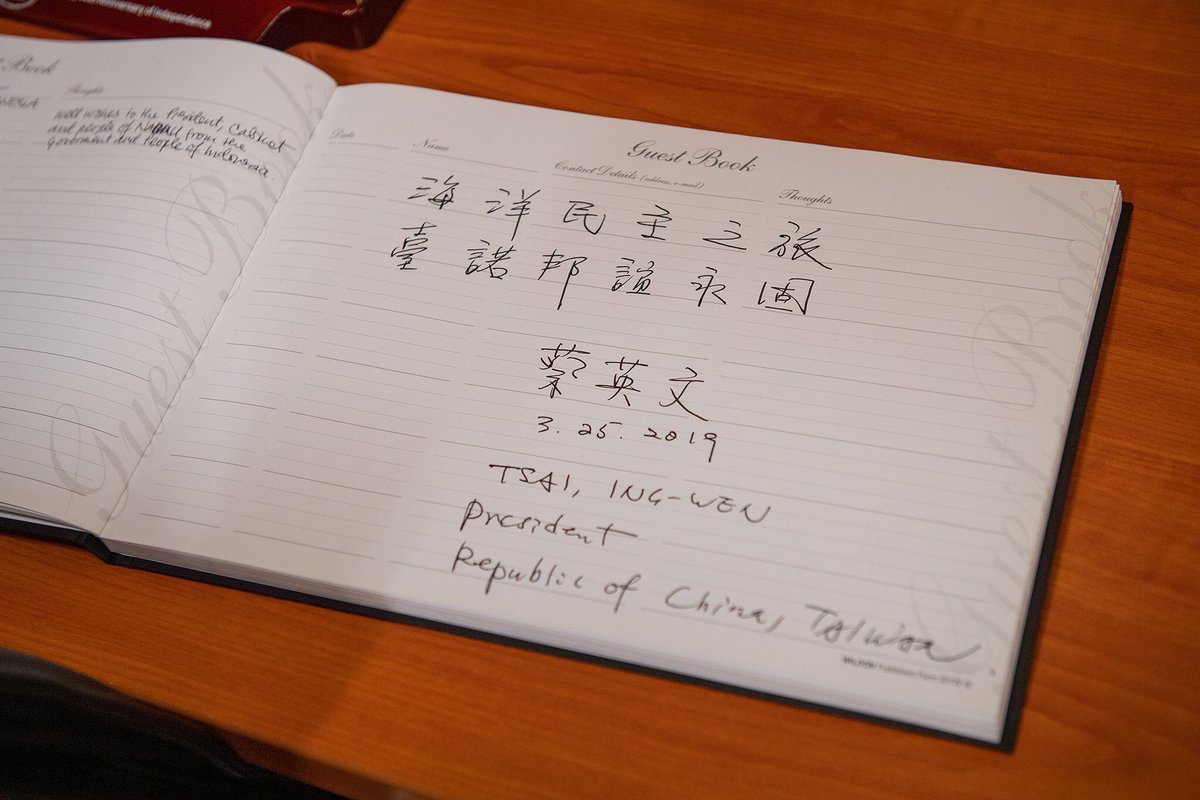 Anniversary of Independence
Book
Thoughts
well wishes to the President, Cabinet
and people of NAURU from the
Goverment and People of Indonesia.
Guest Book
Guest Book
Date
Name
Contact Details (address, e-mail)
Thoughts
海洋民主之旅
臺諾邦誼永固
蔡英文
3. 25. 2019
TSAI, ING-WEN
President
Republic of China, TAIWan
Guest Book